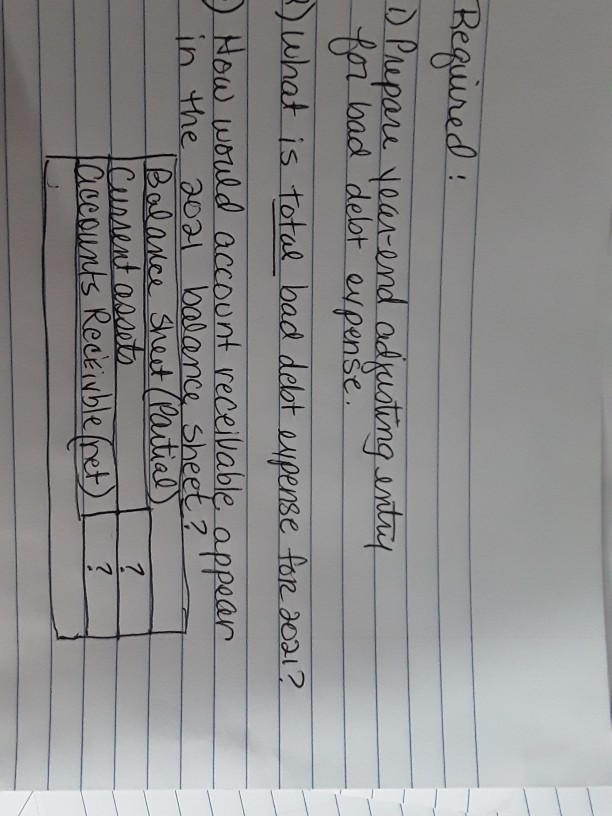 Required:
1) Prepare year-end adjusting entry
for bad debt expense.
2) What is total bad debt expense for 2021?
) How would account receivable appear
in the 2021 balance sheet?
Balance sheet (Partial)
Current assets ?
Accounts Receivble (net) ?